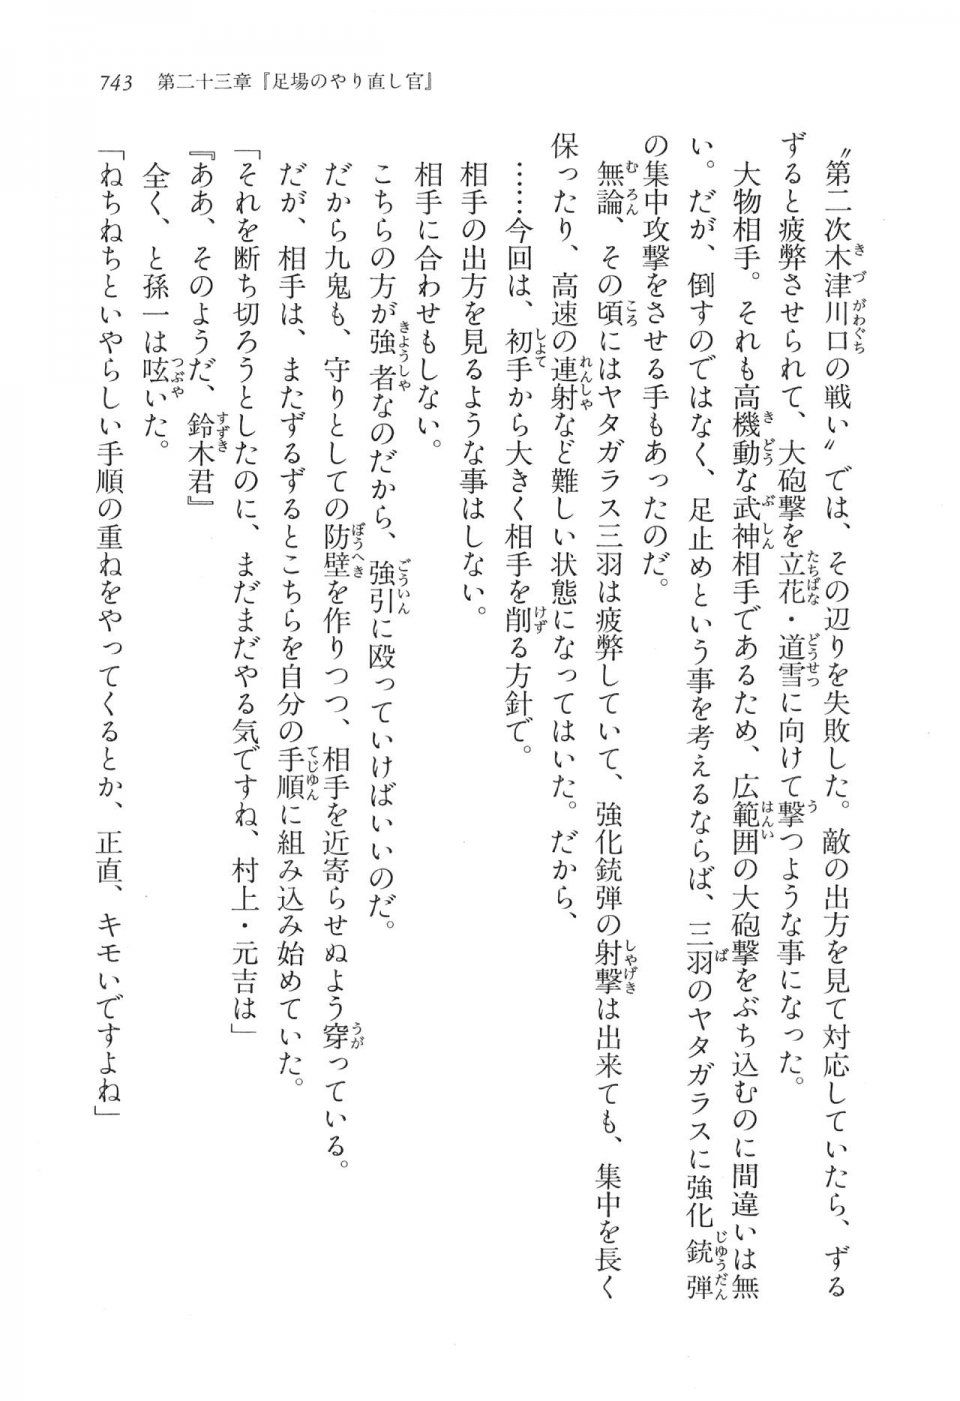 743　第二十三章『足場のやり直し官』
〝第二次木津川口の戦い〟では、その辺りを失敗した。敵の出方を見て対応していたら、ずる
ずると疲弊させられて、大砲撃を立花・道雪に向けて撃つような事になった。
大物相手。それも高機動な武神相手であるため、広範囲の大砲撃をぶち込むのに間違いは無
い。だが、倒すのではなく、足止めという事を考えるならば、三羽のヤタガラスに強化銃弾
の集中攻撃をさせる手もあったのだ。
無論、その頃にはヤタガラス三羽は疲弊していて、強化銃弾の射撃は出来ても、集中を長く
保ったり、高速の連射など難しい状態になってはいた。だから、
……今回は、初手から大きく相手を削る方針で。
相手の出方を見るような事はしない。
相手に合わせもしない。
こちらの方が強者なのだから、強引に殴っていけばいいのだ。
だから九鬼も、守りとしての防壁を作りつつ、相手を近寄らせぬよう穿っている。
だが、相手は、またずるずるとこちらを自分の手順に組み込み始めていた。
「それを断ち切ろうとしたのに、まだまだやる気ですね、村上・元吉は」
『ああ、そのようだ、鈴木君』
全く、と孫一は呟いた。
「ねちねちといやらしい手順の重ねをやってくるとか、正直、キモいですよね」